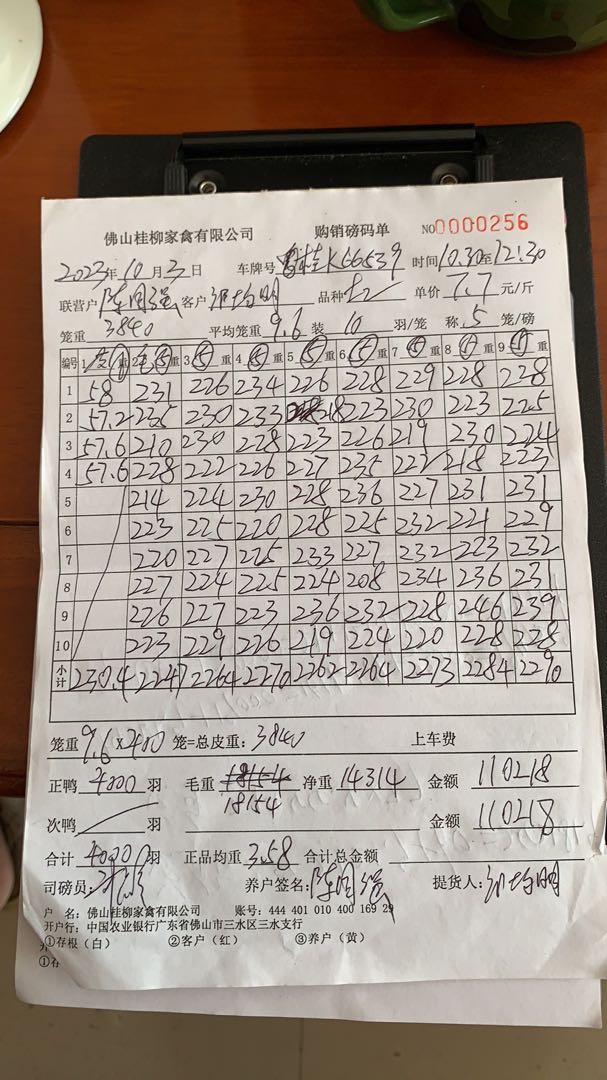 佛山桂柳家禽有限公司 购销磅码单 NO0000256
2023年10月3日 车牌号 桂K66539 时间10.30至12:30
联营户 客户 品种 单价7.7元/斤
笼重3840 平均笼重9.6装10羽/笼 称5笼/磅
编号 1 重 2 重 3⑤重 4⑤重 5⑤重 6⑤重 7⑤重 8⑤重 9⑤重
1 58 231 226 234 226 228 229 228 228
2 57.2 235 230 233 218 223 230 223 225
3 57.6 210 230 228 223 226 219 230 224
4 57.6 228 222 226 227 235 222 218 223
5 214 224 230 228 236 227 231 231
6 223 225 220 228 225 232 221 229
7 220 227 225 233 227 232 223 232
8 227 224 225 224 208 234 236 231
9 226 227 223 236 232 228 246 239
10 223 229 226 219 224 220 228 228
小计 230.4 2247 2264 2270 2262 2264 2273 2284 2290
笼重9.6×400笼=总皮重:3840 上车费
正鸭4000羽 毛重18154 净重14314 金额110218
18154
次鸭 羽 金额110218
合计4000羽 正品均重3.58 合计总金额
司磅员: 养户签名: 提货人:
户 名:佛山桂柳家禽有限公司 账号:444 401 010 400 169 29
开户行:中国农业银行广东省佛山市三水区三水支行
①存根(白) ②客户(红) ③养户(黄)
①存